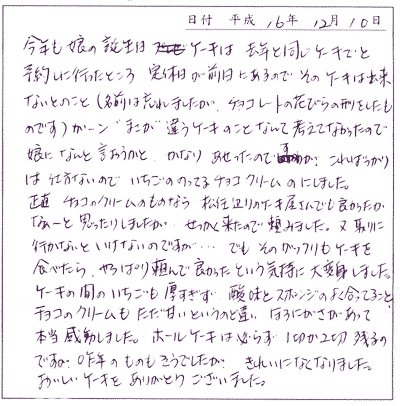 日付 平成 16年 12月 10日
今年も娘の誕生は ケーキは 去年と同じケーキでと
予約しに行ったところ 定休日が前日にあるのでそのケーキは出来
ないとのこと(名前は忘れましたが、チョコレートの花びらの形をしたも
のです)がーン まさか 違うケーキのことなんて考えてなかったので
娘になんと言おうかと、かなり あせったのですが、こればっかり
は仕方ないので いちごののってるチョコクリームのにしました。
正直 チョコのクリームのものなら 松任辺りのケーキ屋さんでも良かったか
なぁーと思ったりしましたが せっかく来たので頼みました。又取りに
行かないといけないのですが… でも そのがっくりもケーキを
食べたら、やっぱり頼んで良かったという気持に大変身しました。
ケーキの間のいちごも厚すぎず 酸味とスポンジのよく合ってること、
チョコのクリームも ただ甘いというのと違い ほろにがさがあって
本当感動しました。ホールケーキは必らず 1切か2切 残るの
ですが、昨年のものもそうでしたが、きれいになくなりました。
おいしいケーキを ありがとうございました。